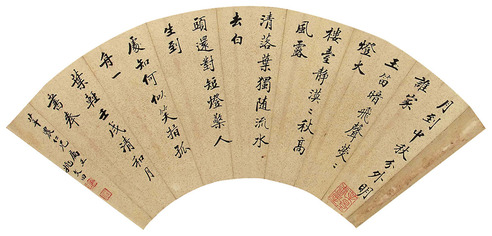 月到中秋分外明
誰家
玉笛暗飛聲熒熒
燈火
樓臺靜漠漠秋高
風露
清落葉獨隨流水
去白
頭還對短燈檠人
生到
處知何似笑指孤
舟一
葉輕 壬戌清和月
書奉
仁兄屬